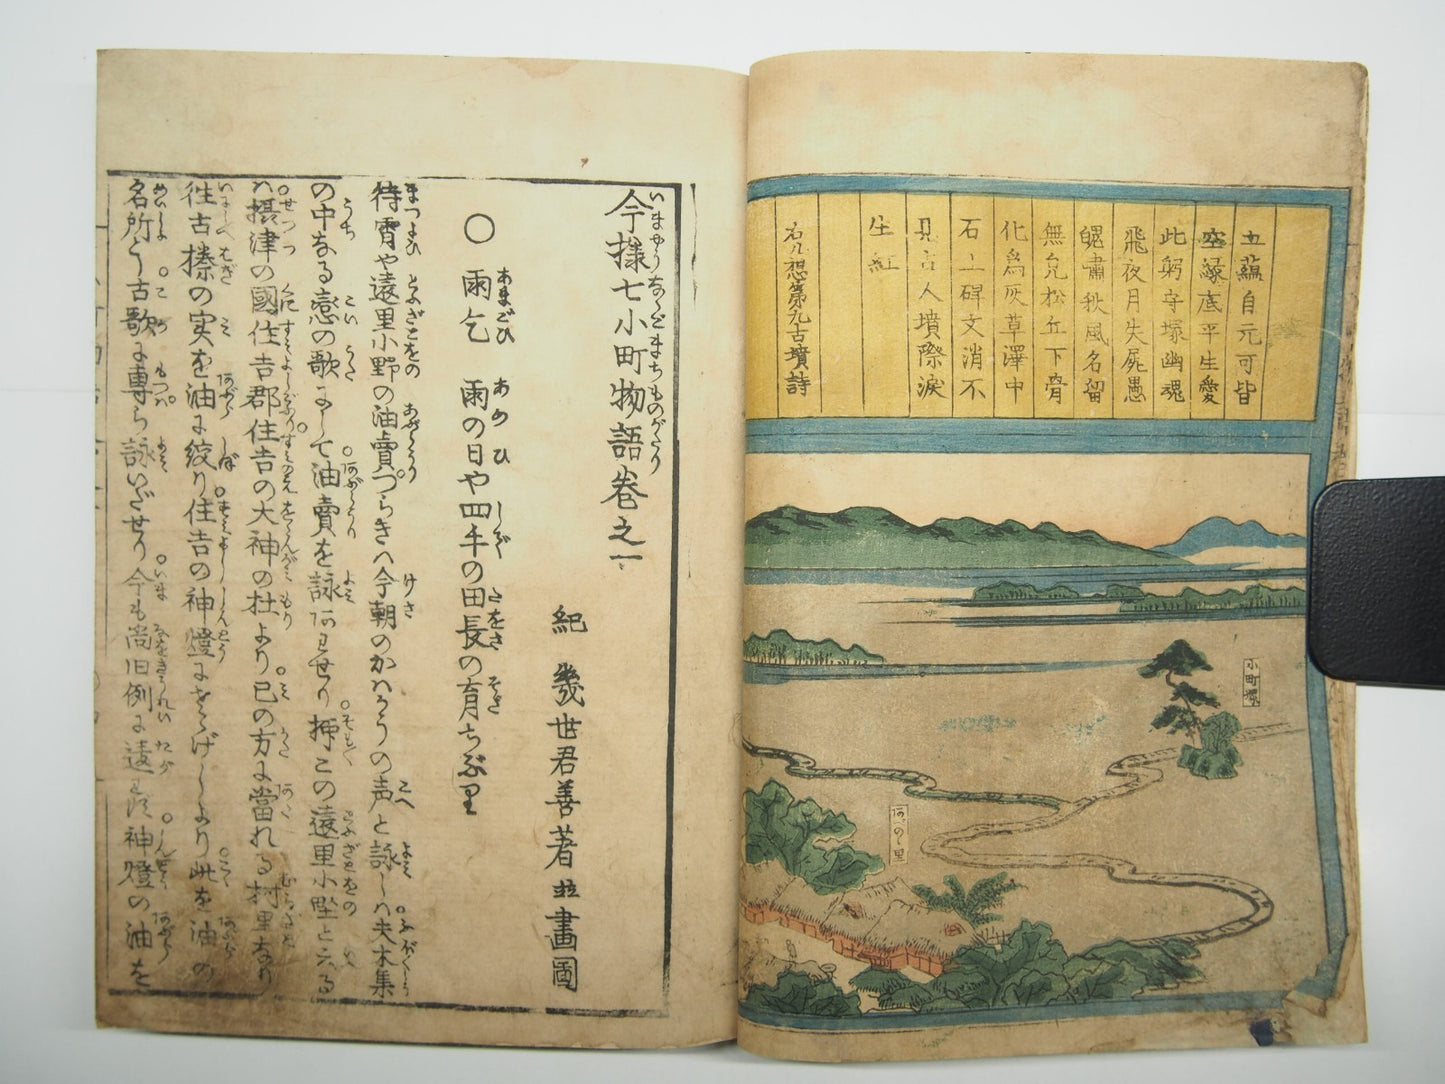 五蘊自元可皆
空縁底平生愛
此躬守塚幽魂
飛夜月失屍愚
魄嘯秋風名留
無皃松丘下骨
化為灰草澤中
石上碑文消不
見古人墳際淚
生紅
右九想第九古墳詩
小町墳
阿べの里
今様七小町物語巻之一
紀 幾世君善著並畫圖
○ 雨乞 雨の日や四手の田長の育ちぶり
待霄や遠里小野の油賣づらきハ今朝のかハうの声と詠しハ夫木集
の中なる恋の歌にして油賣を詠あわせり抑この遠里小野と云る
ハ摂津の國住吉郡住吉の大神の社より巳の方に當れる村里なり
往古榛の実を油に絞り住吉の神燈にさゝげしより此を油の
名所とう古歌に専ら詠いだせり今も尚旧例に違わず神燈の油を